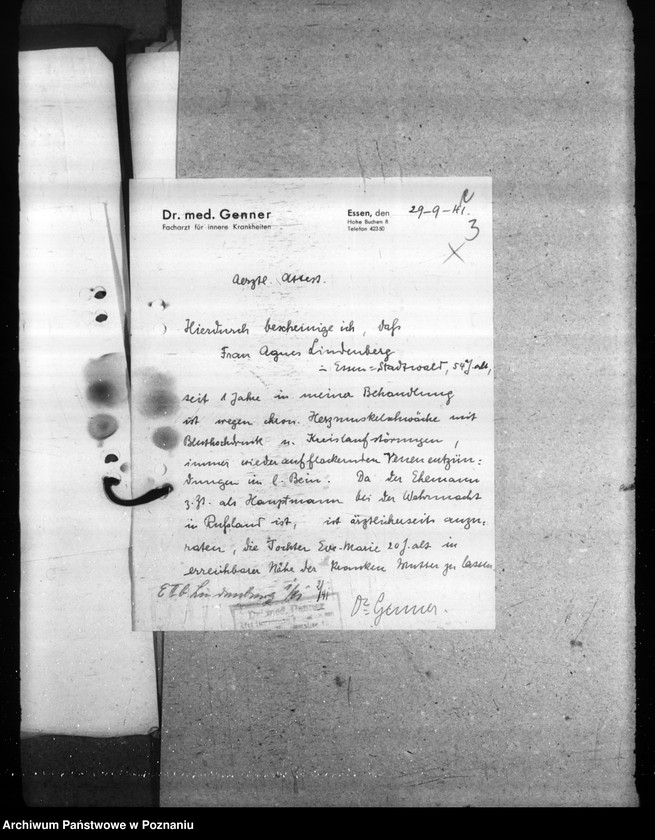 Dr. med. Genner
Facharzt für innere Krankheiten
Essen, den 29-9-41.
Hohe Buchen 8
Telefon 42350
3
Aerztl. Attest.
Hierdurch bescheinige ich, daß
Frau Agnes Lindenberg
Essen=Stadtwald, 54 J. alt,
seit 1 Jahre in meiner Behandlung
ist wegen chron. Herzmuskelschwäche mit
Bluthochdruck u. Kreislaufstörungen,
immer wieder aufflackernden Venenentzün=
dungen im l. Bein. Da der Ehemann
z. Zt. als Hauptmann bei der Wehrmacht
in Rußland ist, ist ärztlicherseits anzu=
raten, die Tochter Eva-Marie 20 J. alt in
erreichbarer Nähe der kranken Mutter zu lassen.
Dr. Genner.
Dr. med. Genner
Archiwum Państwowe w Poznaniu